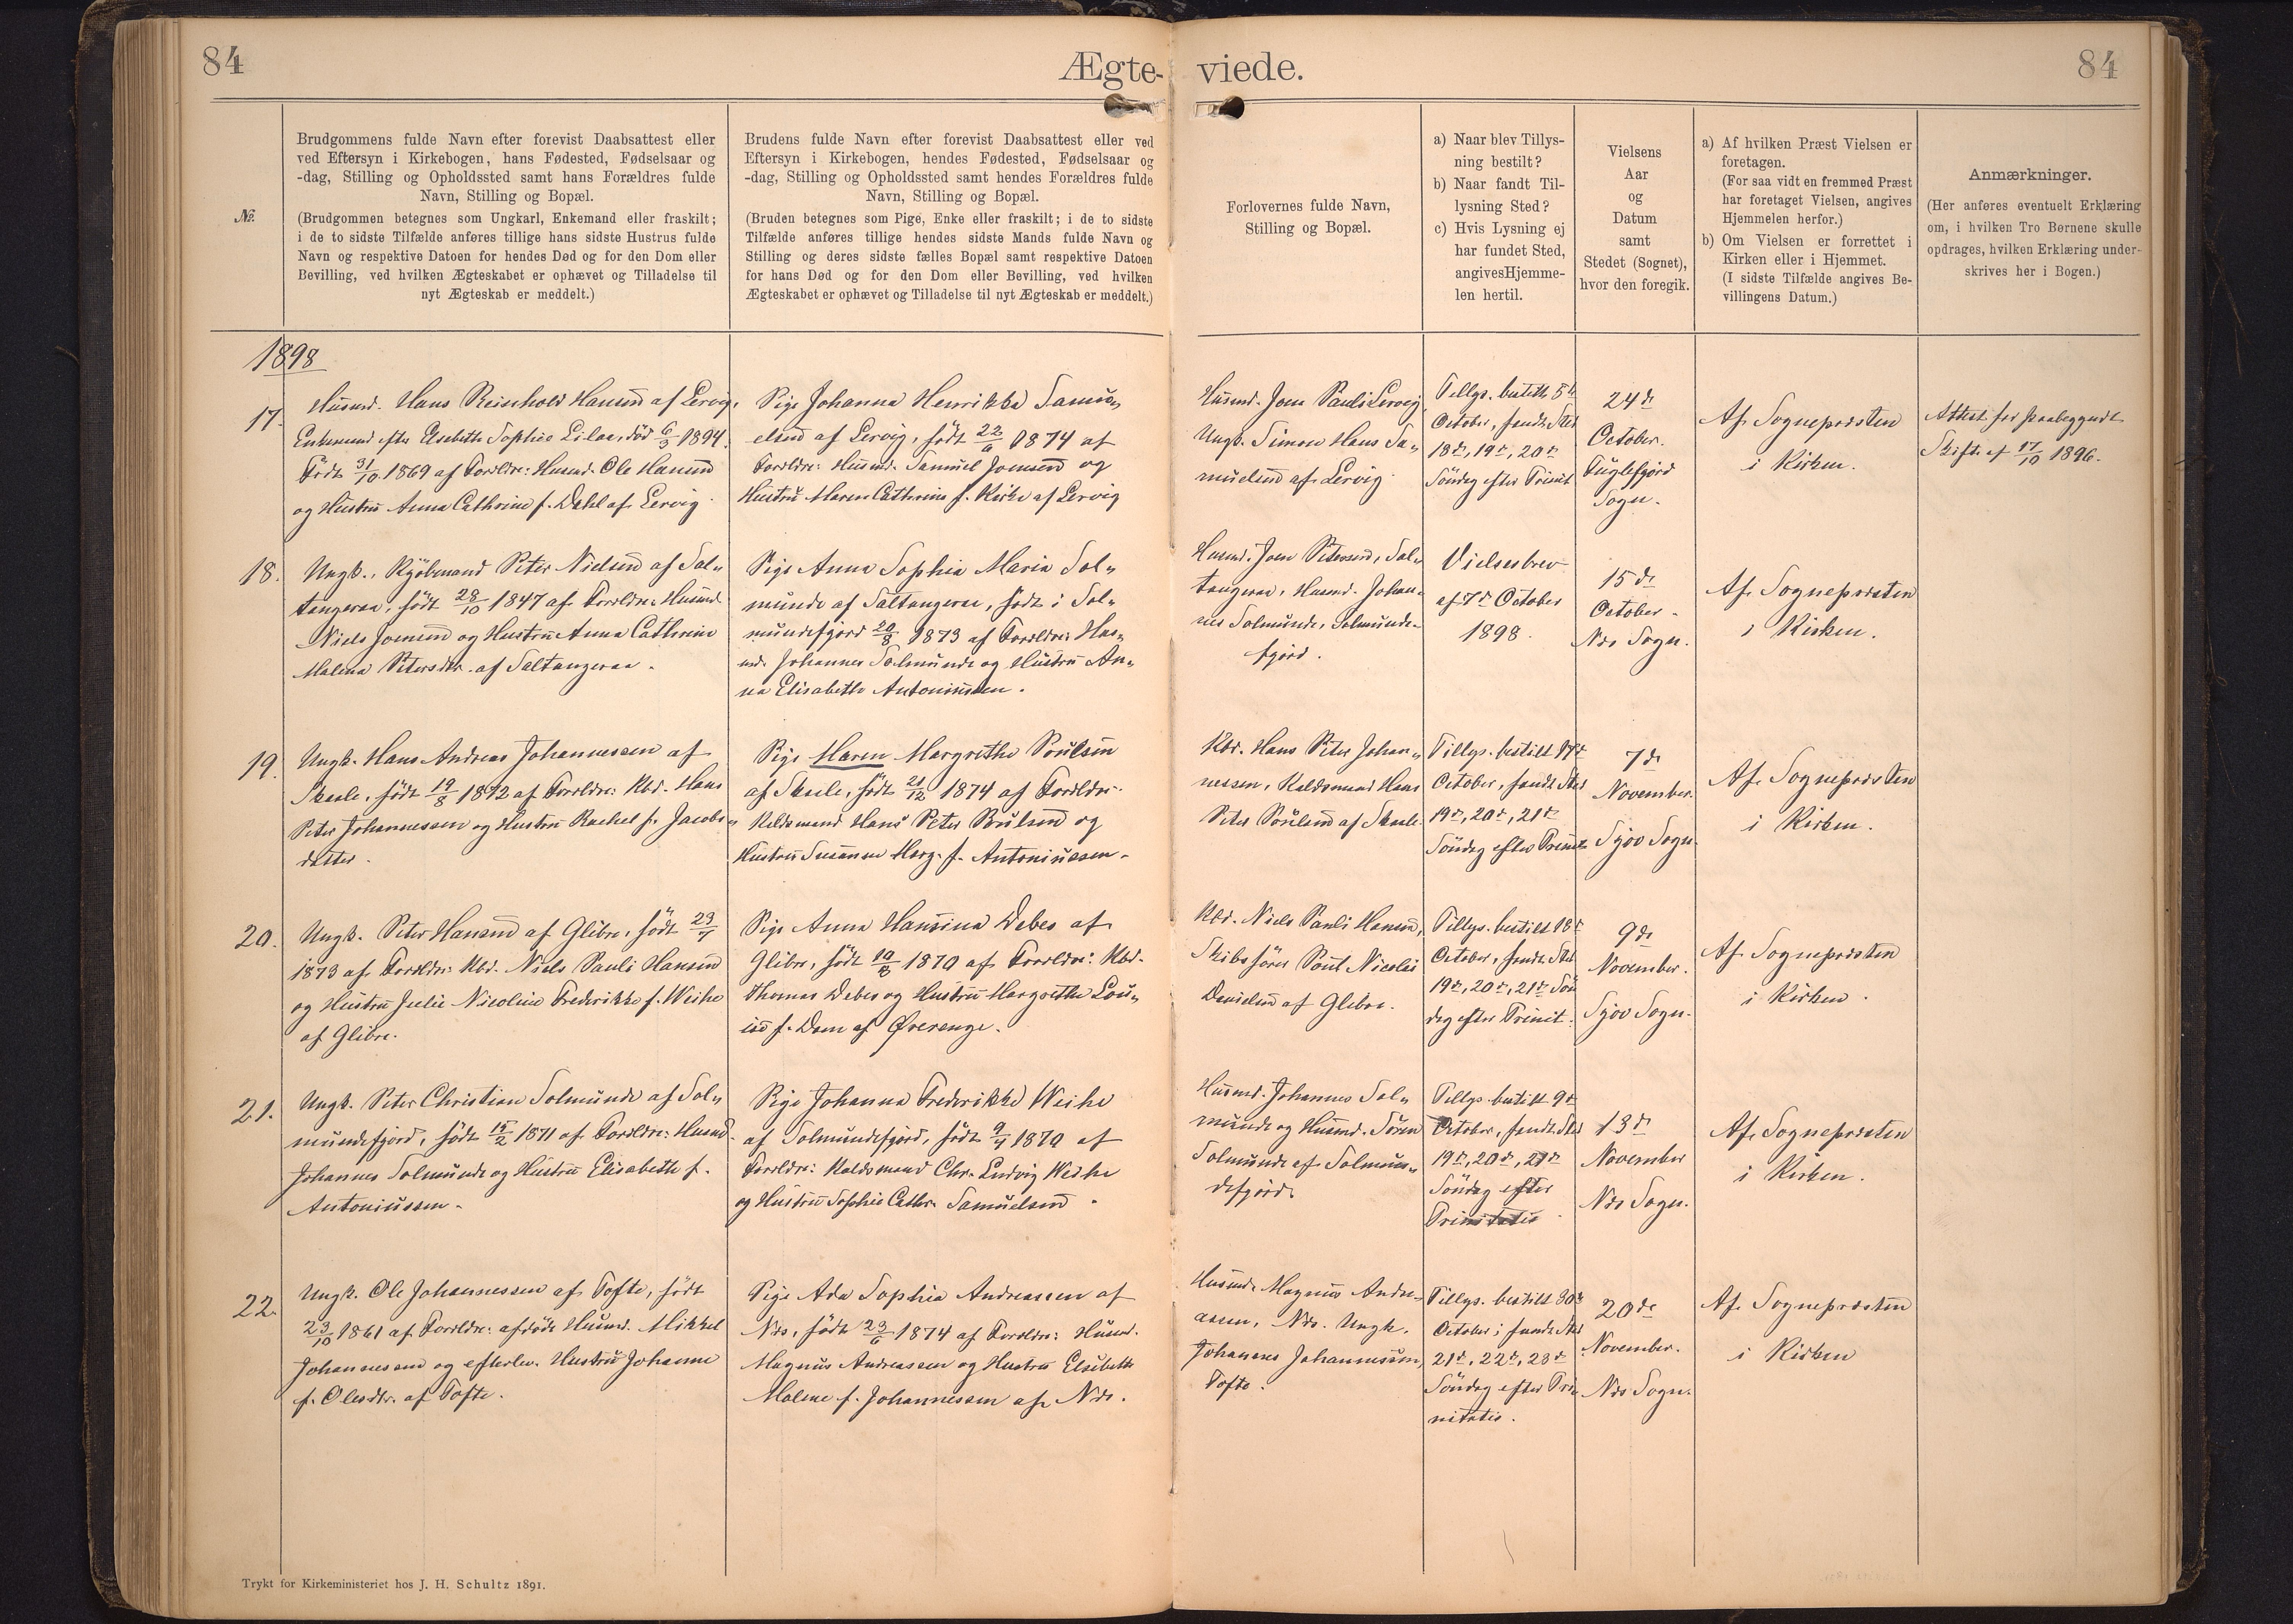 84
Ægte-
viede.
84
№.
Brudgommens fulde Navn efter forevist Daabsattest eller
ved Eftersyn i Kirkebogen, hans Fødested, Fødselsaar og
-dag, Stilling og Opholdssted samt hans Forældres fulde
Navn, Stilling og Bopæl.
(Brudgommen betegnes som Ungkarl, Enkemand eller fraskilt;
i de to sidste Tilfælde anføres tillige hans sidste Hustrus fulde
Navn og respektive Datoen for hendes Død og for den Dom eller
Bevilling, ved hvilken Ægteskabet er ophævet og Tilladelse til
nyt Ægteskab er meddelt.)
Brudens fulde Navn efter forevist Daabsattest eller ved
Eftersyn i Kirkebogen, hendes Fødested, Fødselsaar og
-dag, Stilling og Opholdssted samt hendes Forældres fulde
Navn, Stilling og Bopæl.
(Bruden betegnes som Pige, Enke eller fraskilt; i de to sidste
Tilfælde anføres tillige hendes sidste Mands fulde Navn og
Stilling og deres sidste fælles Bopæl samt respektive Datoen
for hans Død og for den Dom eller Bevilling, ved hvilken
Ægteskabet er ophævet og Tilladelse til nyt Ægteskab er meddelt.)
Forlovernes fulde Navn,
Stilling og Bopæl.
a) Naar blev Tillys-
ning bestilt?
b) Naar fandt Til-
lysning Sted?
c) Hvis Lysning ej
har fundet Sted,
angives Hjemme-
len hertil.
Vielsens
Aar
og
Datum
samt
Stedet (Sognet),
hvor den foregik.
a) Af hvilken Præst Vielsen er
foretagen.
(For saa vidt en fremmed Præst
har foretaget Vielsen, angives
Hjemmelen herfor.)
b) Om Vielsen er forrettet i
Kirken eller i Hjemmet.
(I sidste Tilfælde angives Be-
villingens Datum.)
Anmærkninger.
(Her anføres eventuelt Erklæring
om, i hvilken Tro Børnene skulle
opdrages, hvilken Erklæring under-
skrives her i Bogen.)
1898
17.
Husmd. Hans Reinhold Hansen af Lervig,
Enkemand efter Elsebeth Sophie Lilaa, død 6/3 1894.
Født 31/10 1869 af Forældre: Husmd. Ole Hansen
og Hustru Anna Cathrine f. Dahl af Lervig.
Pige Johanna Henrikka Samu-
elsen af Lervig, født 22/6 1874 af
Forældre: Husmd. Samuel Joensen og
Hustru Maren Cathrine f. Kirke af Lervig
Husmd. Joen Pauli Lervig,
Ungk. Simon Hans Sa-
muelsen af Lervig.
Tillys. bestilt 5te
October, fandt Sted
18de, 19de, 20de
Søndag efter Trinit.
24de
October.
Fuglefjord
Sogn.
Af Sognepræsten
i Kirken.
Attest for paabegyndt
Skifte af 17/10 1896.
18.
Ungk., Kjøbmand Peter Nielsen af Sal-
tangeraa, født 28/10 1847 af Forældre: Husmd.
Niels Joensen og Hustru Anna Cathrine
Malena Petersdtr. af Saltangeraa.
Pige Anna Sophia Maria Sol-
munde af Saltangeraa, født i Sol-
mundefjord 20/8 1873 af Forældre: Hus-
md. Johannes Solmunde og Hustru An-
na Elisabeth Antoniussen.
Husmd. Joen Petersen, Sal-
tangeraa, Husmd. Johan-
nes Solmunde, Solmunde-
fjord.
Vielsesbrev
af 7de October
1898.
15de
October.
Næs Sogn.
Af Sognepræsten
i Kirken.
19.
Ungk. Hans Andreas Johannessen af
Skaale, født 19/8 1872 af Forældre: Kbd. Hans
Peter Johannessen og Hustru Rachel f. Jacobs-
datter.
Pige Maren Margrethe Poulsen
af Skaale, født 21/12 1874 af Forældre:
Kaldsmand Hans Peter Poulsen og
Hustru Susanne Marg. f. Antoniussen.
Kbd. Hans Peter Johan-
nessen, Kaldsmand Hans
Peter Poulsen af Skaale.
Tillys. bestilt 17de
October, fandt Sted
19de, 20de, 21de
Søndag efter Trinit.
7de
November.
Sjov Sogn.
Af Sognepræsten
i Kirken.
20.
Ungk. Peter Hansen af Glibre, født
1873 af Forældre: Kbd. Niels Pauli Hansen
og Hustru Julie Nicoline Frederikke f. Weihe
af Glibre.
Pige Anna Hansina Debes af
Glibre, født 1870 af Forældre: Kbd.
Thomas Debes og Hustru Margrethe Lou-
ise f. Dam af Øverenge.
Kbd. Niels Pauli Hansen,
Skibsfører Poul Nicolai
Danielsen af Glibre.
Tillys. bestilt 18de
October, fandt Sted
19de, 20de, 21de Søn
dag efter Trinit.
9de
November.
Sjov Sogn.
Af Sognepræsten
i Kirken.
21.
Ungk. Peter Christian Solmunde af Sol-
mundefjord, født 15/2 1871 af Forældre: Husmd.
Johannes Solmunde og Hustru Elisabeth f.
Antoniussen.
Pige Johanna Frederikke Weihe
af Solmundefjord, født 9/4 1870 af
Forældre: Kaldsmand Chr. Ludvig Weihe
og Hustru Sophie Cathr. Samuelsen.
Husmd. Johannes Sol-
munde og Husmd. Søren
Solmunde af Solmun-
defjord.
Tillys. bestilt 9de
October, fandt Sted
19de, 20de, 21de
Søndag efter
Trinitatis.
13de
November
Næs Sogn.
Af Sognepræsten
i Kirken.
22.
Ungk. Ole Johannessen af Tofte, født
23/10 1861 af Forældre: afdøde Husmd. Mikkel
Johannessen og efterlev. Hustru Johanne
f. Olesdtr. af Tofte.
Pige Ada Sophia Andreassen af
Næs, født 23/6 1874 af Forældre: Husmd.
Magnus Andreassen og Hustru Elsebeth
Malene f. Johannessen af Næs.
Husmd. Magnus Andre-
assen, Næs. Ungk.
Johannes Johannessen,
Tofte.
Tillys. bestilt 30te
October, fandt Sted
21de, 22de, 23de
Søndag efter Tri-
nitatis.
20de
November.
Næs Sogn.
Af Sognepræsten
i Kirken
Trykt for Kirkeministeriet hos J. H. Schultz 1891.